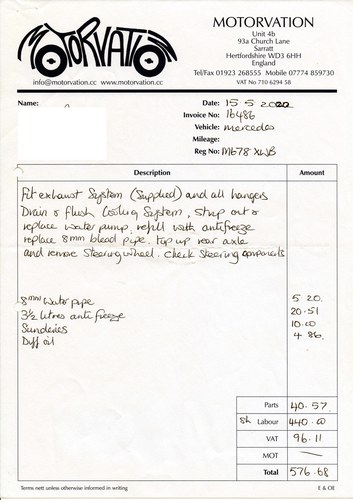 MOTORVATION
info@motorvation.cc www.motorvation.cc
MOTORVATION
Unit 4b
93a Church Lane
Sarratt
Hertfordshire WD3 6HH
England
Tel/Fax 01923 268555 Mobile 07774 859730
VAT No 710 6294 58
Name:
Date: 15-5 2020
Invoice No: 16486
Vehicle: mercedes
Mileage:
Reg No: M678 XWB
Description Amount
Fit exhaust System (Supplied) and all hangers
Drain & flush Cooling System, strip out &
replace water pump, refill with antifreeze
replace 8mm bleed pipe. top up rear axle
and remove Steering wheel. Check Steering components
8mm Water pipe 5 20.
3½ litres antifreeze 20.51
Sunderies 10.00
Diff oil 4 86.
Parts 40.57.
8h Labour 440.00
VAT 96.11
MOT —
Total 576.68
Terms nett unless otherwise informed in writing E & OE